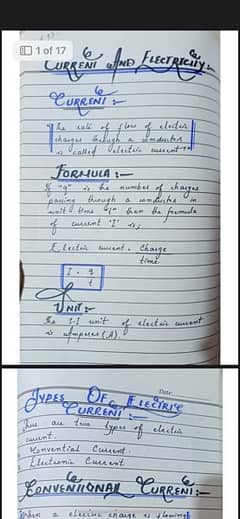 1 of 17
CURRENT AND ELECTRICITY:-
CURRENT :-
"The rate of flow of electric
charges through a conductor
is called electric current"
FORMULA :-
If "q" is the number of charges
passing through a conductor in
unit time "t" then the formula
of current 'I' is;
Electric current = Charge
time
I = q
t
UNIT :-
The S.I unit of electric current
is amperes (A).
Date
TYPES OF ELECTRIC
CURRENT :-
There are two types of electric
current.
Convential Current.
Electronic Current
CONVENTIONAL CURRENT:-
When a electric charge is flowing